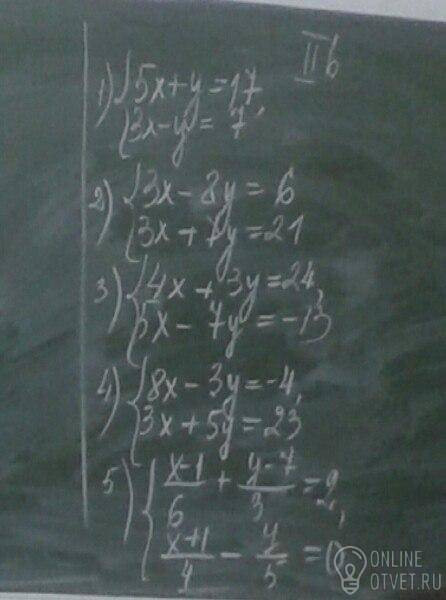 II в
1) { 5x + y = 17,
3x - y = 7
2) { 3x - 8y = 6
3x + 7y = 21
3) { 4x + 3y = 24,
5x - 7y = -13
4) { 8x - 3y = -4,
3x + 5y = 23
5) { (x-1)/6 + (y-7)/3 = 2,
(x+1)/4 - y/5 =
ONLINE
OTVET.RU